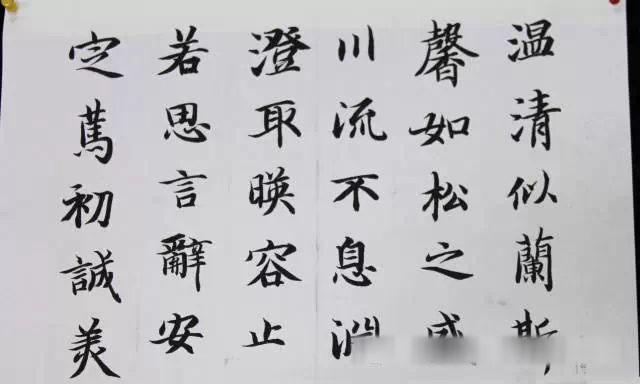 温清似蘭斯
馨如松之盛
川流不息淵
澄取暎容止
若思言辭安
定篤初誠美